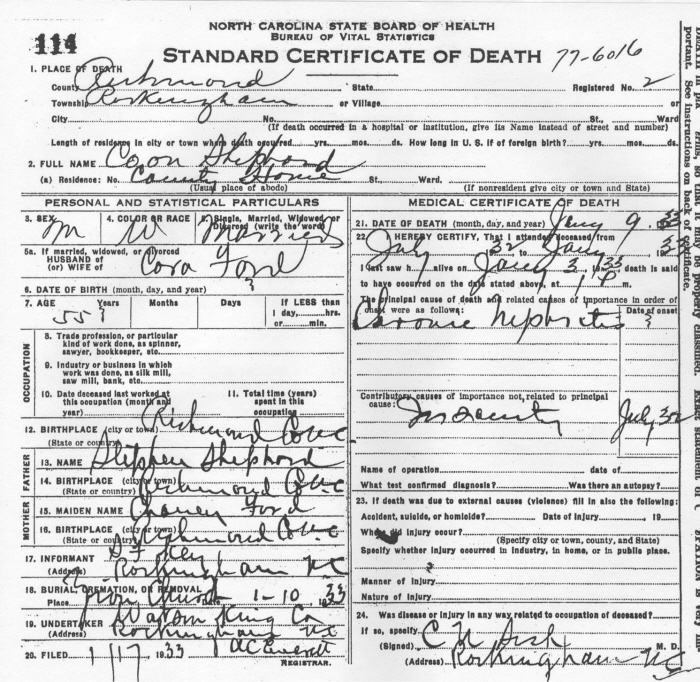 NORTH CAROLINA STATE BOARD OF HEALTH
BUREAU OF VITAL STATISTICS
114
STANDARD CERTIFICATE OF DEATH 77-6016
1. PLACE OF DEATH
County Richmond State Registered No. 2
Township Rockingham or Village
City No. St., Ward
(If death occurred in a hospital or institution, give its Name instead of street and number)
Length of residence in city or town where death occurred yrs. mos. ds. How long in U. S. if of foreign birth? yrs. m. ds.
2. FULL NAME Coon Shephard
(a) Residence: No. County Home St. Ward
(Usual place of abode) (If nonresident give city or town and State)
PERSONAL AND STATISTICAL PARTICULARS
3. SEX 4. COLOR OR RACE 5. Single, Married, Widowed or Divorced (write the word)
M W Married
5a. If married, widowed, or divorced
HUSBAND of
(or) WIFE of Cora Ford
6. DATE OF BIRTH (month, day, and year) ?
7. AGE Years Months Days If LESS than
55? 1 day, hrs.
or min.
OCCUPATION
8. Trade profession, or particular
kind of work done, as spinner,
sawyer, bookkeeper, etc.
9. Industry or business in which
work was done, as silk mill,
saw mill, bank, etc.
10. Date deceased last worked at
this occupation (month and
year)
11. Total time (years)
spent in this
occupation
12. BIRTHPLACE (city or town) Richmond Co NC
(State or country)
FATHER
13. NAME Stephen Shephard
14. BIRTHPLACE (city or town)
(State or country) Richmond Co NC
MOTHER
15. MAIDEN NAME Ford
16. BIRTHPLACE (city or town)
(State or country) Richmond Co NC
17. INFORMANT
(Address) Rockingham NC
18. BURIAL, CREMATION, OR REMOVAL
Place Church Date 1-10 1933
19. UNDERTAKER Watson King Co
(Address) Rockingham NC
20. FILED 1/17 1933 Everett
REGISTRAR.
MEDICAL CERTIFICATE OF DEATH
21. DATE OF DEATH (month, day, and year) Jany 9. 33
22. I HEREBY CERTIFY, That I attended deceased from
32 to Jany 33
I last saw h alive on Jany 3, 1933 death is said
to have occurred on the date stated above, at 1 P m.
The principal cause of death and related causes of importance in order of
onset were as follows: Date of onset
Chronic nephritis ?
Contributory causes of importance not related to principal
cause: Insanity July 32
Name of operation date of
What test confirmed diagnosis? Was there an autopsy?
23. If death was due to external causes (violence) fill in also the following:
Accident, suicide, or homicide? Date of Injury , 19
Where did injury occur?
(Specify city or town, county, and State)
Specify whether injury occurred in industry, in home, or in public place.
Manner of Injury
Nature of Injury
24. Was disease or injury in any way related to occupation of deceased?
If so, specify
(Signed) M. D.
(Address) Rockingham NC
portant. See instructions on back of certificate.